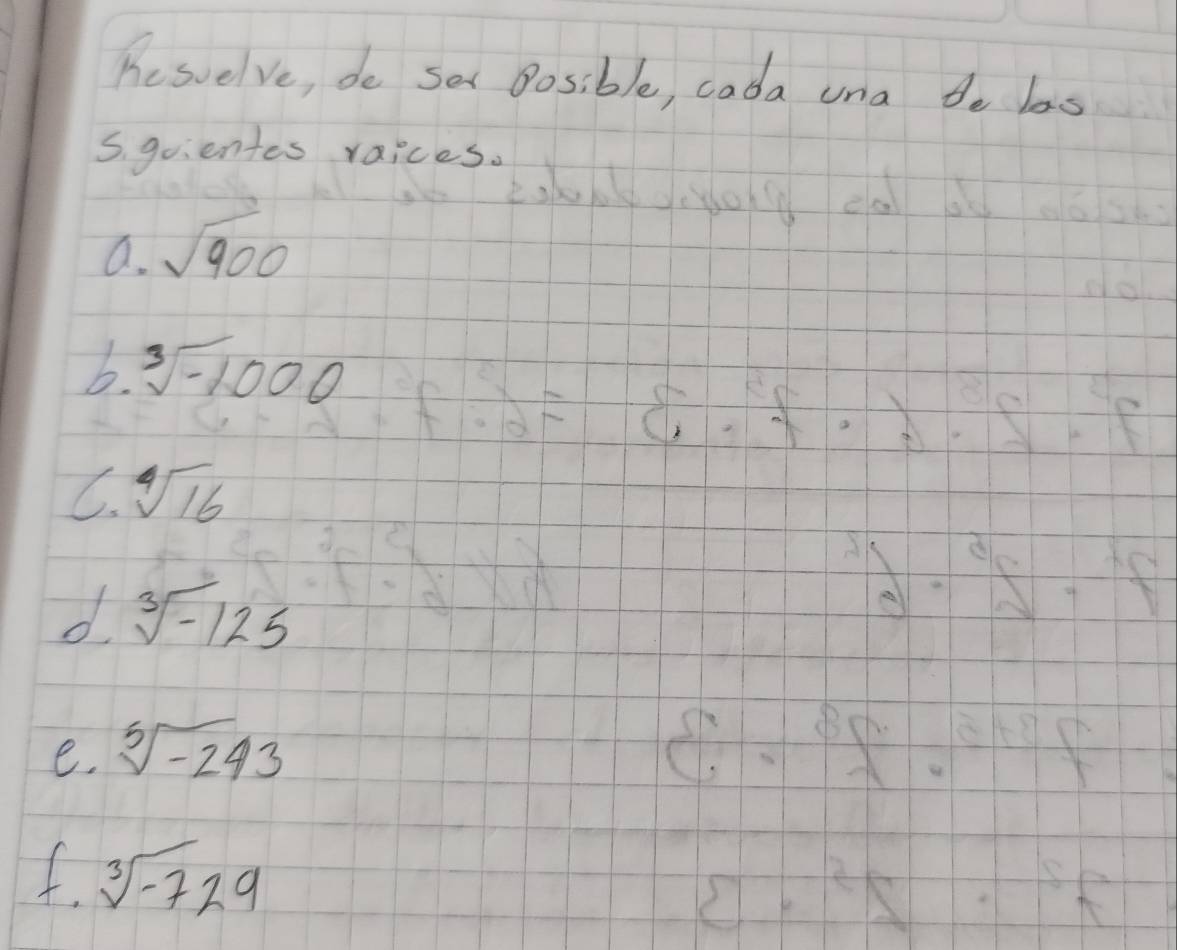 Resuelve, de ser Posible, cada una de las
siguientes raices.
a. √900
b. ∛-1000
c. ∜16
d. ∛-125
e. ⁵√-243
f. ∛-729